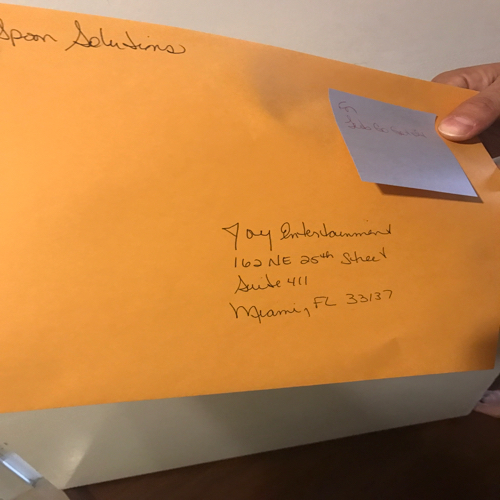 Spoon Solutions
For
Joy Entertainment
162 NE 25th Street
Suite 411
Miami, FL 33137